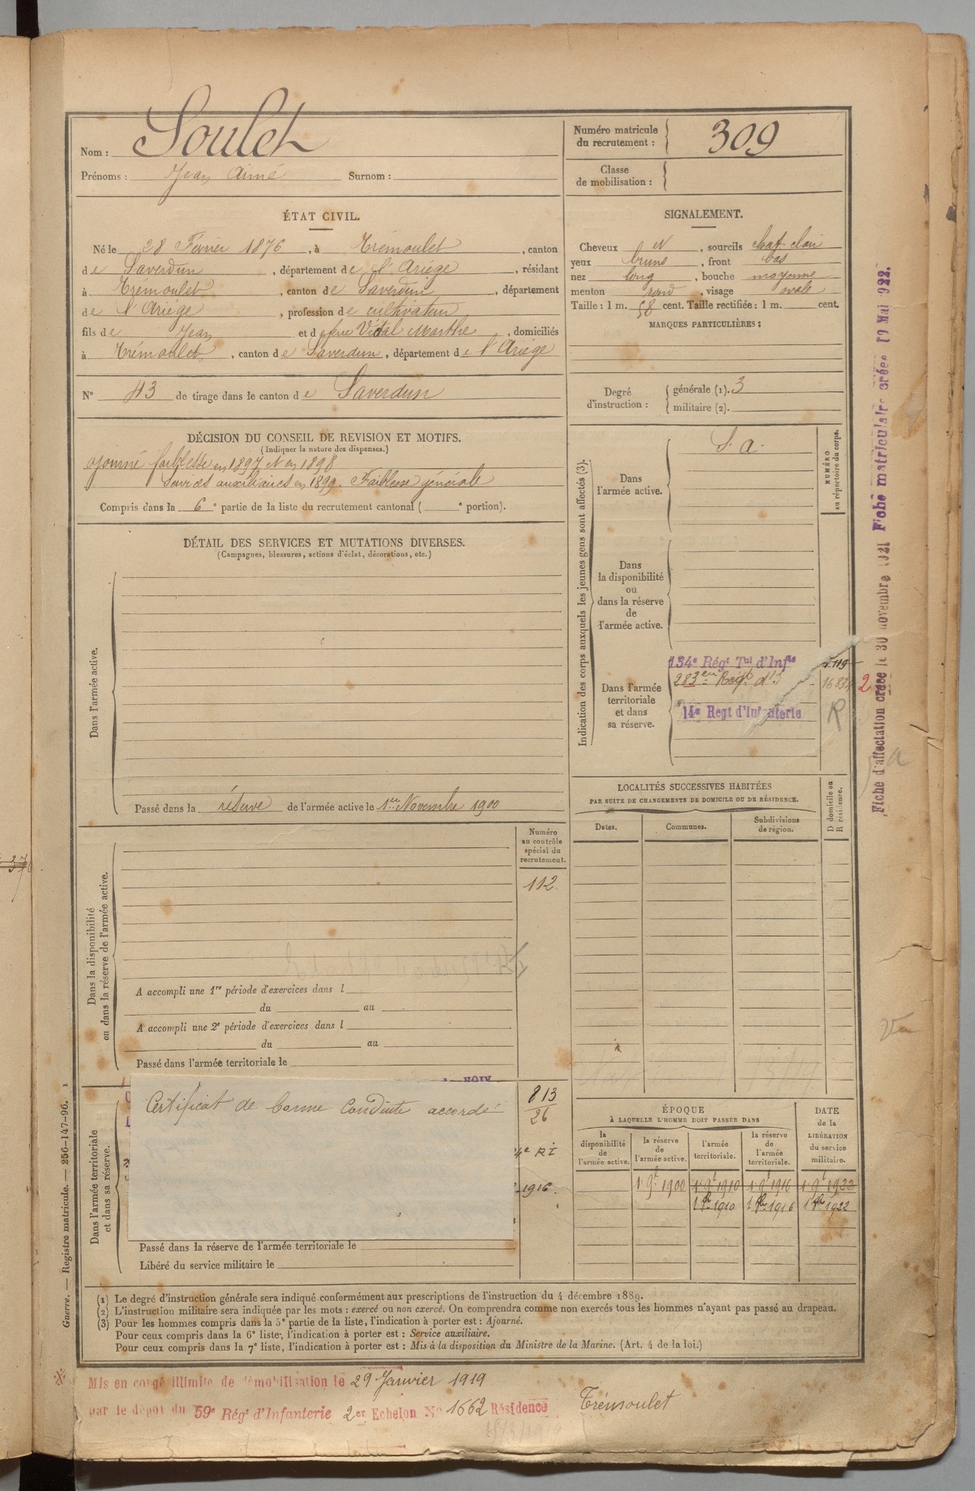 Nom : Soulet
Prénoms : Jean Aimé Surnom :
Numéro matricule du recrutement : 309
Classe de mobilisation :
ÉTAT CIVIL.
Né le 28 Février 1876, à Trémoulet, canton
de Saverdun, département de l'Ariège, résidant
à Trémoulet, canton de Saverdun, département
de l'Ariège, profession de cultivateur
fils de Jean et de Vidal Marthe, domiciliés
à Trémoulet, canton de Saverdun, département de l'Ariège
N° 43 de tirage dans le canton de Saverdun
SIGNALEMENT.
Cheveux N, sourcils chat-clair
yeux bruns, front bas
nez long, bouche moyenne
menton rond, visage ovale
Taille : 1 m. 58 cent. Taille rectifiée : 1 m. cent.
MARQUES PARTICULIÈRES :
Degré d'instruction : générale (1). 3
militaire (2).
DÉCISION DU CONSEIL DE REVISION ET MOTIFS.
(Indiquer la nature des dispenses.)
ajourné faiblesse en 1897 et en 1898
Services auxiliaires en 1899. Faiblesse générale
Compris dans la 6e partie de la liste du recrutement cantonal ( e portion).
DÉTAIL DES SERVICES ET MUTATIONS DIVERSES.
(Campagnes, blessures, actions d'éclat, décorations, etc.)
Dans l'armée active.
Passé dans la réserve de l'armée active le 1er Novembre 1900
Indication des corps auxquels les jeunes gens sont affectés (3).
NUMÉRO au répertoire du corps.
Dans l'armée active.
S. a.
Dans la disponibilité ou dans la réserve de l'armée active.
Dans l'armée territoriale et dans sa réserve.
134e Régt Tal d'Infie
283e Régt d'I
14e Regt d'Infanterie
R
2
LOCALITÉS SUCCESSIVES HABITÉES
PAR SUITE DE CHANGEMENTS DE DOMICILE OU DE RÉSIDENCE.
D domicile ou R résidence.
Dates. Communes. Subdivisions de région.
Numéro au contrôle spécial du recrutement.
112
Dans la disponibilité ou dans la réserve de l'armée active.
A accompli une 1re période d'exercices dans l
du au
A accompli une 2e période d'exercices dans l
du au
Passé dans l'armée territoriale le
Dans l'armée territoriale et dans sa réserve.
Certificat de bonne Conduite accordé
813
26
4e RI
1916.
Passé dans la réserve de l'armée territoriale le
Libéré du service militaire le
ÉPOQUE
À LAQUELLE L'HOMME DOIT PASSER DANS
la disponibilité de l'armée active.
la réserve de l'armée active.
l'armée territoriale.
la réserve de l'armée territoriale.
DATE de la LIBÉRATION du service militaire.
1 9bre 1900 1 9bre 1910 1 9bre 1916 1 9bre 1922
1 8bre 1910 1 8bre 1916 1 8bre 1922
(1) Le degré d'instruction générale sera indiqué conformément aux prescriptions de l'instruction du 4 décembre 1889.
(2) L'instruction militaire sera indiquée par les mots : exercé ou non exercé. On comprendra comme non exercés tous les hommes n'ayant pas passé au drapeau.
(3) Pour les hommes compris dans la 5e partie de la liste, l'indication à porter est : Ajourné.
Pour ceux compris dans la 6e liste, l'indication à porter est : Service auxiliaire.
Pour ceux compris dans la 7e liste, l'indication à porter est : Mis à la disposition du Ministre de la Marine. (Art. 4 de la loi.)
Mis en congé illimité de démobilisation le 29 Janvier 1919
par le dépôt du 59e Régt d'Infanterie 2er Echelon N° 1662 Résidence Trémoulet
Guerre. — Registre matricule. — 256-147-96.
Fiche d'affectation créée le 30 novembre 1921 Fiche matriculaire créée 19 Mai 1922.
Vu